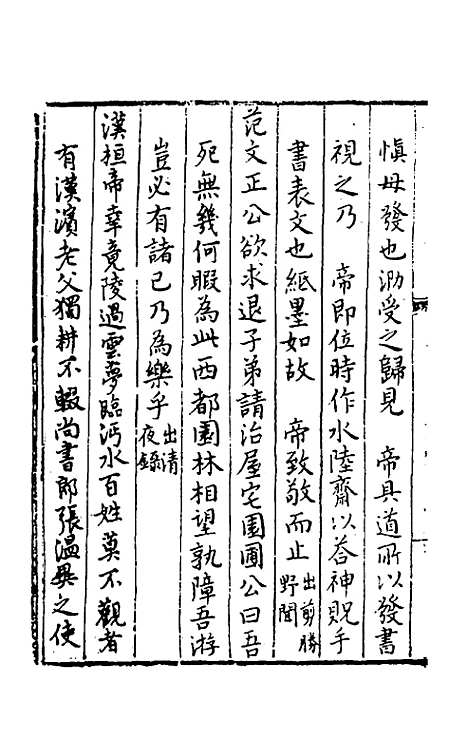 慎毋發也泐受之歸見　帝具道所以發書
視之乃　帝即位時作水陸齋以荅神貺手
書表文也紙墨如故　帝致敬而止出剪勝野聞
范文正公欲求退子弟請治屋宅園圃公曰吾
死無幾何暇為此西都園林相望孰障吾游
豈必有諸己乃為樂乎出清夜錄
漢桓帝幸竟陵過雲夢臨沔水百姓莫不觀者
有漢濱老父獨耕不輟尚書郎張溫異之使